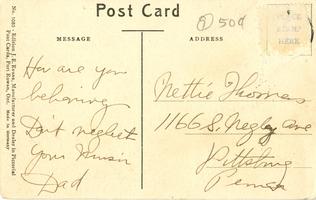 Post Card
50¢
MESSAGE
ADDRESS
PLACE
STAMP
HERE
No. 1035 - Edition J. E. Evans, Manufacturer and Dealer in Pictorial
Post Cards, Port Rowan, Ont. Made in Germany
How are you
behaving
Don't neglect
your music
Dad
Nettie Thomas
1166 S. Negley Ave
Pittsburg
Penna